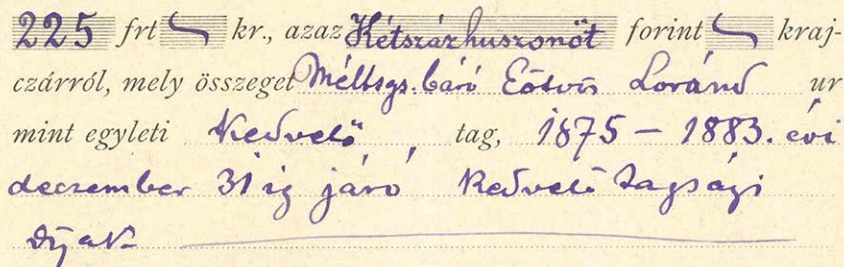 225 frt – kr., azaz Kétszázhuszonöt forint – kraj-
czárról, mely összeget Méltsgs. báró Eötvös Loránd ur
mint egyleti Kedvelő tag, 1875 – 1883. évi
deczember 31 ig járó Kedvelő tagsági
díjak